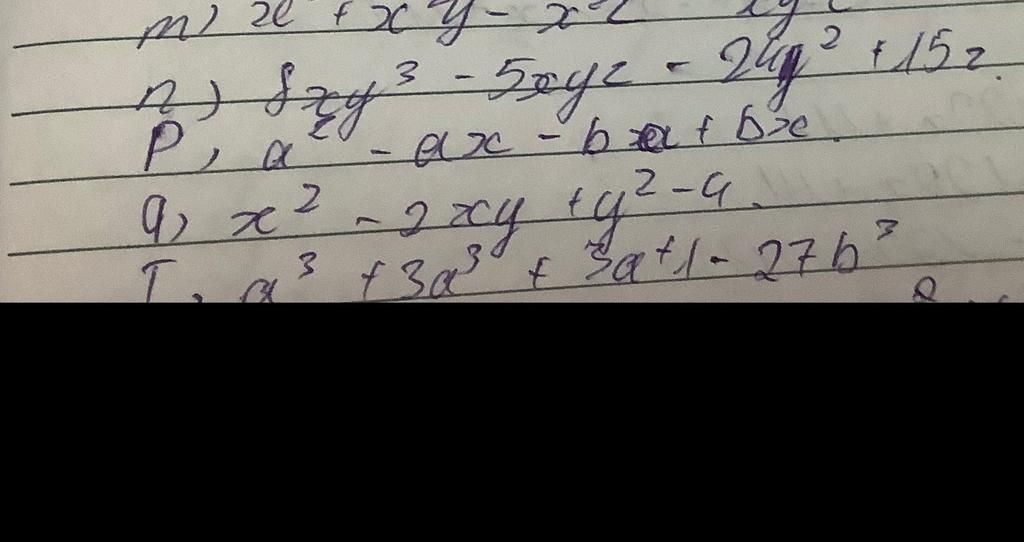 m) x + x y - x z
n) 8xy³ - 5xyz - 24y² + 15z.
P, a² - ax - ba + bx.
q) x² - 2xy + y² - 9.
T, a³ + 3a³ + 3a + 1 - 27b³